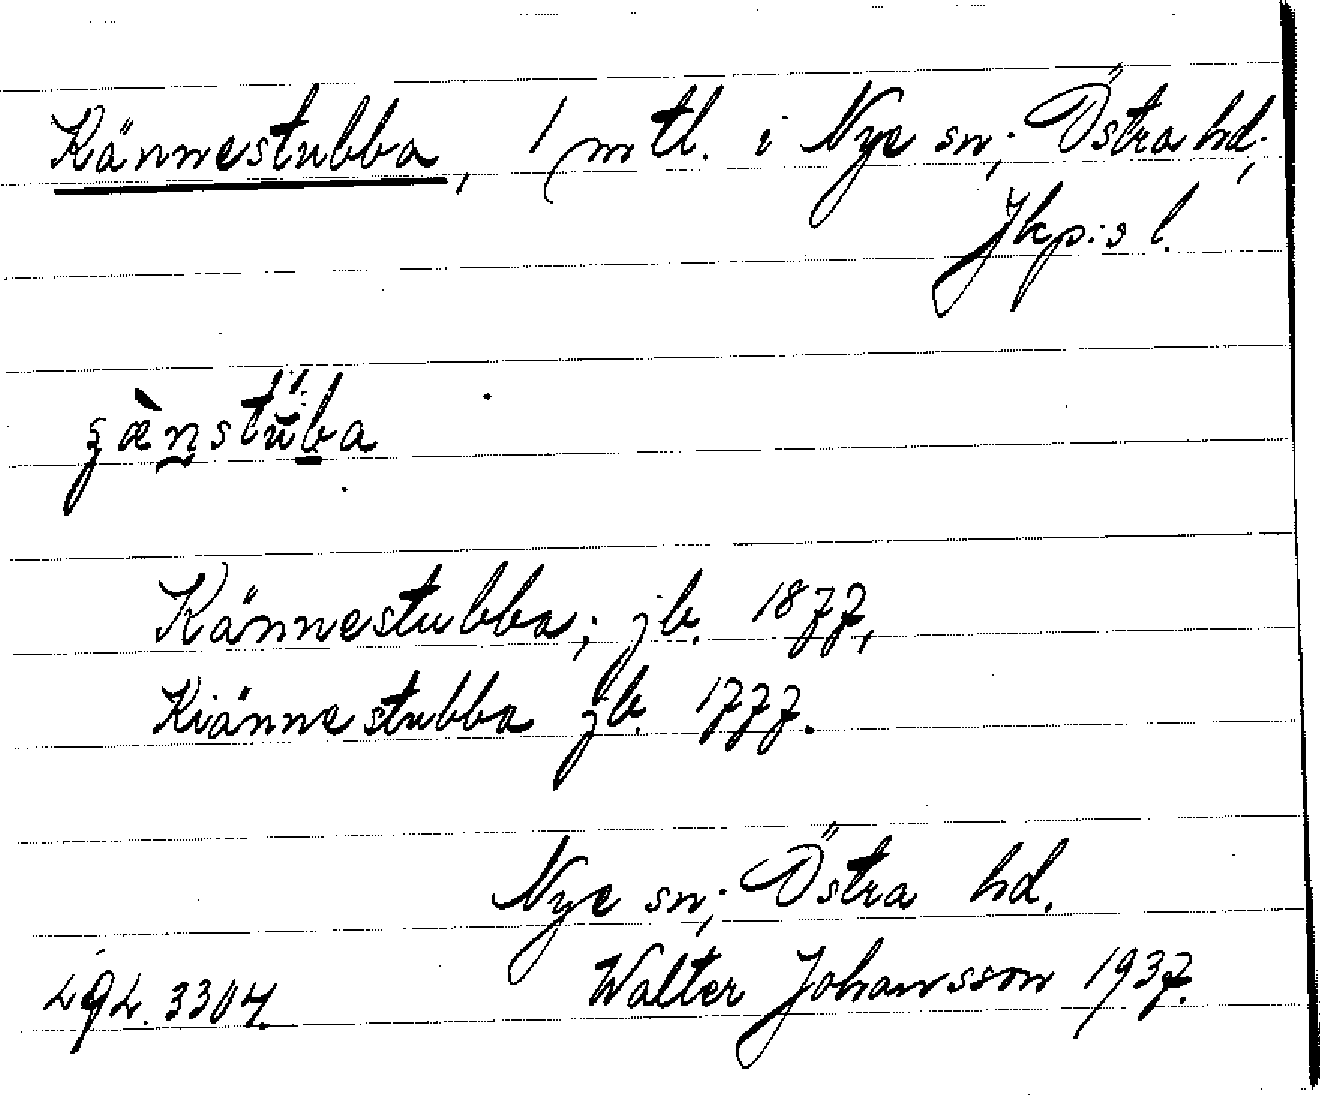 Kännestubba, 1 mtl. i Nye sn; Östra hd;
Jkp:s l.
Kännestubba; jb. 1877,
Kiännestubba jb. 1777.
Nye sn; Östra hd.
3304. Walter Johansson 1937.